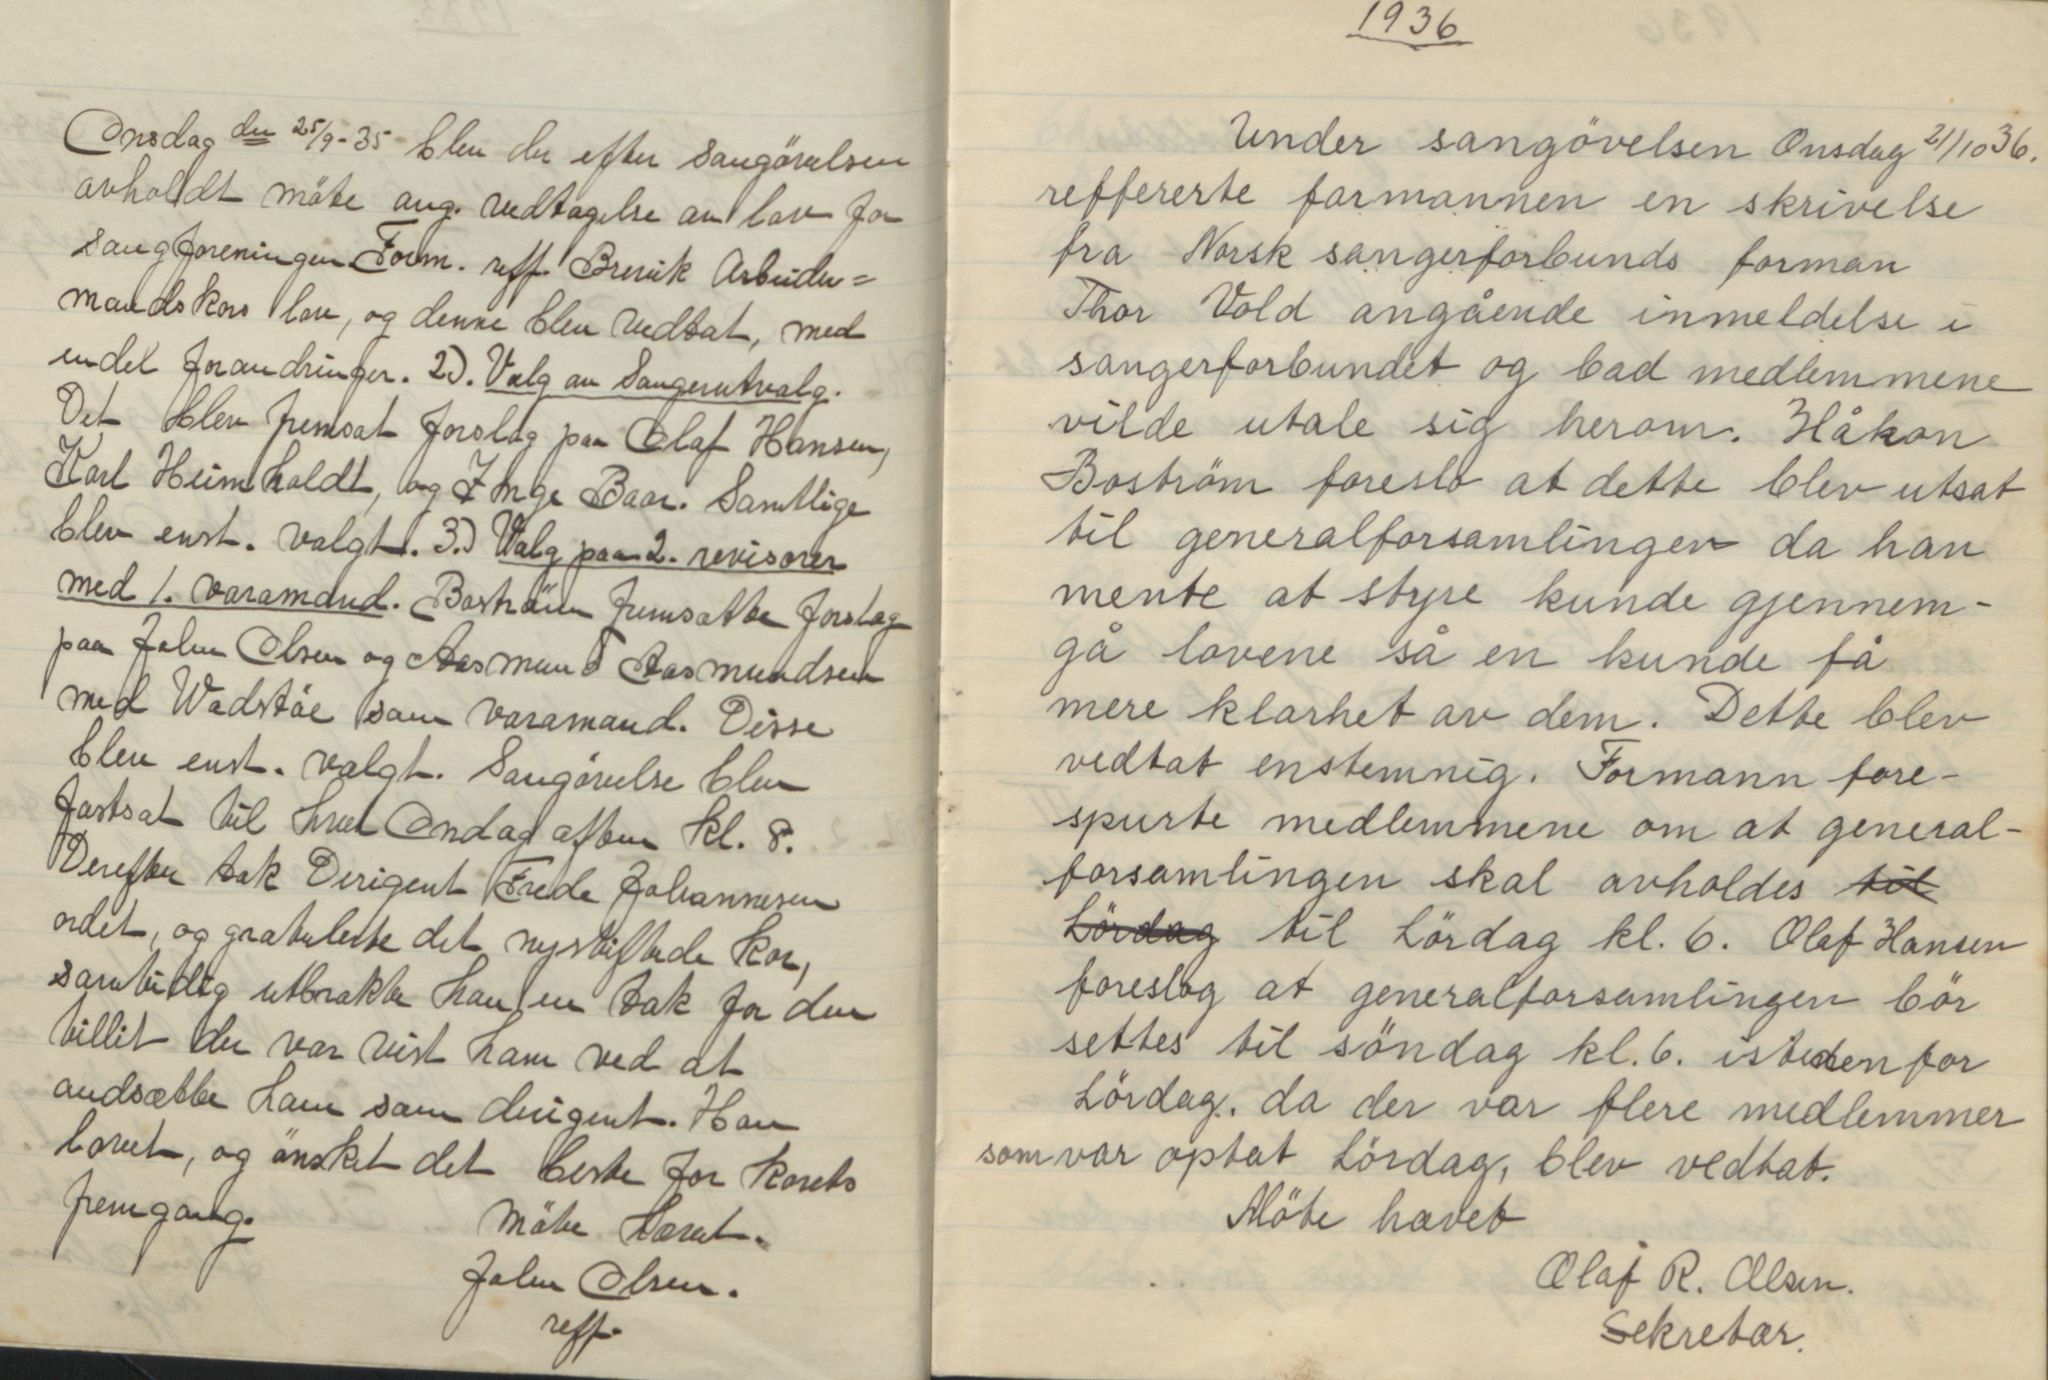 Onsdag den 25/9-35 blev der efter sangövelsen
avholdt möte ang. vedtagelse av lov for
sangforeningen. Form. reff. Brevik Arbeider=
mandskors lov, og denne blev vedtat, med
endel forandringer. 2). Valg av Sangerutvalg.
Det blev fremsat forslag paa Olaf Hansen,
Karl Heimholdt, og Inge Baar. Samtlige
blev enst. valgt. 3.) Valg paa 2. revisorer
med 1. varamand. Boström fremsatte forslag
paa John Olsen og Aasmund Aasmundsen
med Wadstöe som varamand. Disse
blev enst. valgt. Sangövelse blev
fastsat til hver Ondag aften kl. 8.
Derefter tok Dirigent Frede Johannesen
ordet, og gratulerte det nystiftede kor,
samtidig utbrakte han en tak for den
tillit der var vist ham ved at
andsætte ham som dirigent. Han
lovet, og önsket det beste for korets
fremgang.
Möte hævet.
John Olsen.
reff.
1936
Under sangövelsen Onsdag 21/10 36.
reffererte formannen en skrivelse
fra Norsk sangerforbunds forman
Thor Vold angående inmeldelse i
sangerforbundet og bad medlemmene
vilde utale sig herom. Håkon
Boström foreslo at dette blev utsat
til generalforsamlingen da han
mente at styre kunde gjennem-
gå lovene så en kunde få
mere klarhet av dem. Dette blev
vedtat enstemnig. Formann fore-
spurte medlemmene om at general-
forsamlingen skal avholdes til
Lördag til Lördag kl. 6. Olaf Hansen
foreslog at generalforsamlingen bör
settes til söndag kl. 6. istedenfor
Lördag. da der var flere medlemmer
som var optat Lördag, blev vedtat.
Möte hævet
Olaf R. Olsen.
Sekretær.